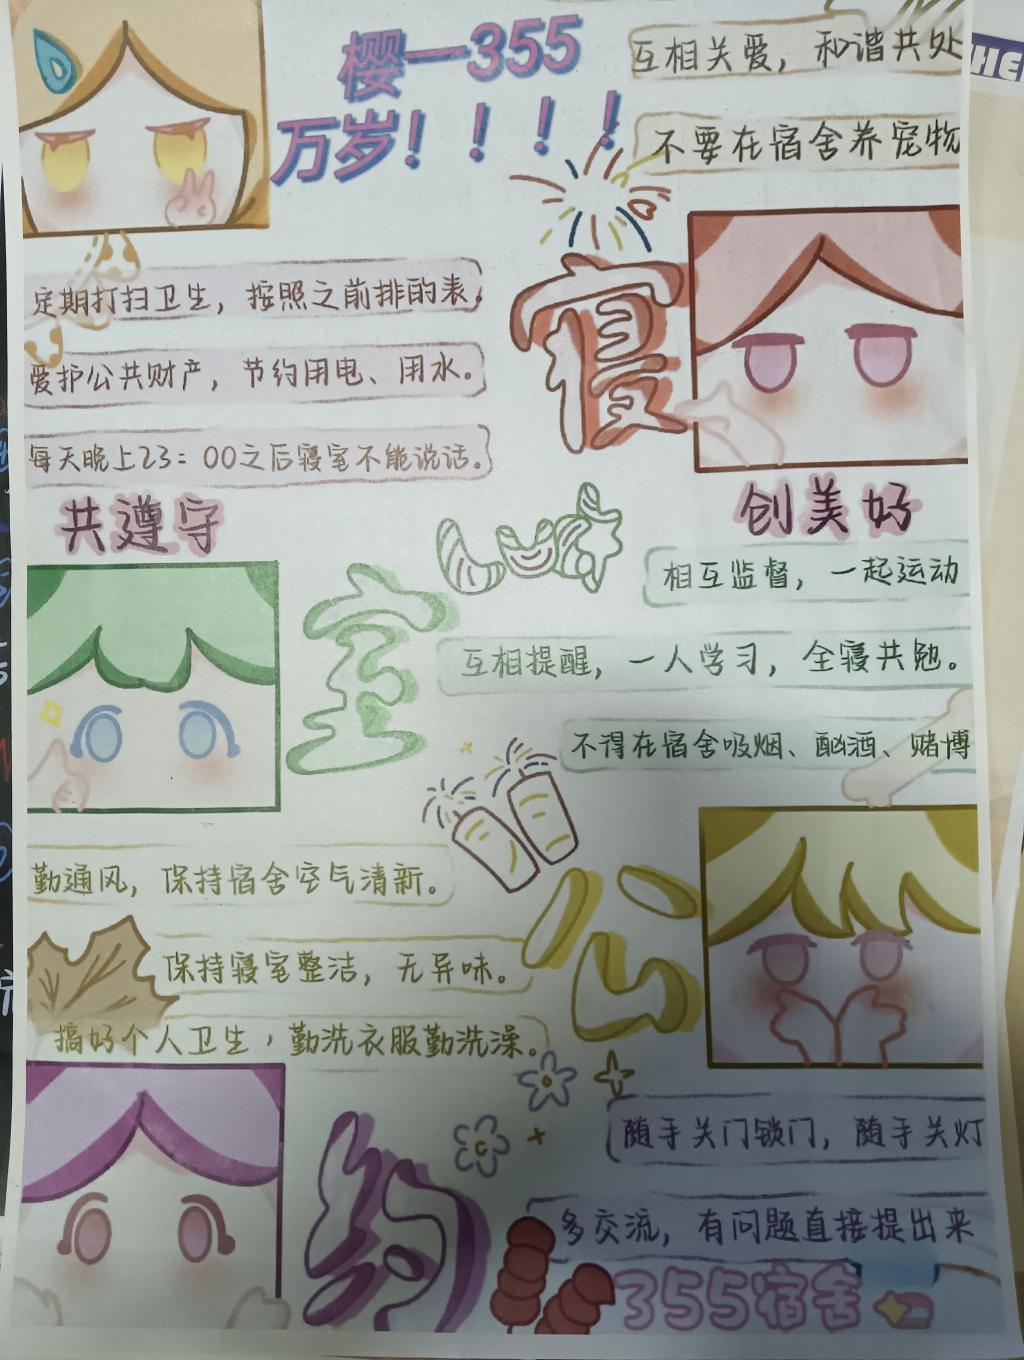 樱一355
万岁！！！！
互相关爱，和谐共处
不要在宿舍养宠物
定期打扫卫生，按照之前排的表，
爱护公共财产，节约用电、用水。
每天晚上23：00之后寝室不能说话。
寝
共遵守
创美好
室
相互监督，一起运动
互相提醒，一人学习，全寝共勉。
不得在宿舍吸烟、酗酒、赌博
勤通风，保持宿舍空气清新。
保持寝室整洁，无异味。
搞好个人卫生，勤洗衣服勤洗澡。
公
随手关门锁门，随手关灯
约
多交流，有问题直接提出来
355宿舍